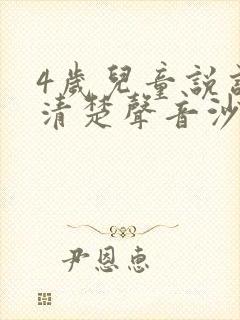 4歲兒童說
清楚聲音沙
尹恩惠